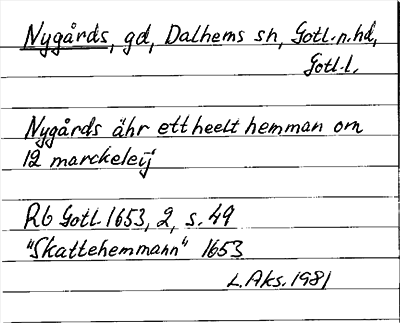 Nygårds, gd, Dalhems sn, Gotl. n. hd,
Gotl. l.
Nygårds ähr ett heelt hemman om
12 marckeleij
Rb Gotl. 1653, 2, s. 49
"Skattehemmann" 1653
L. Aks. 1981